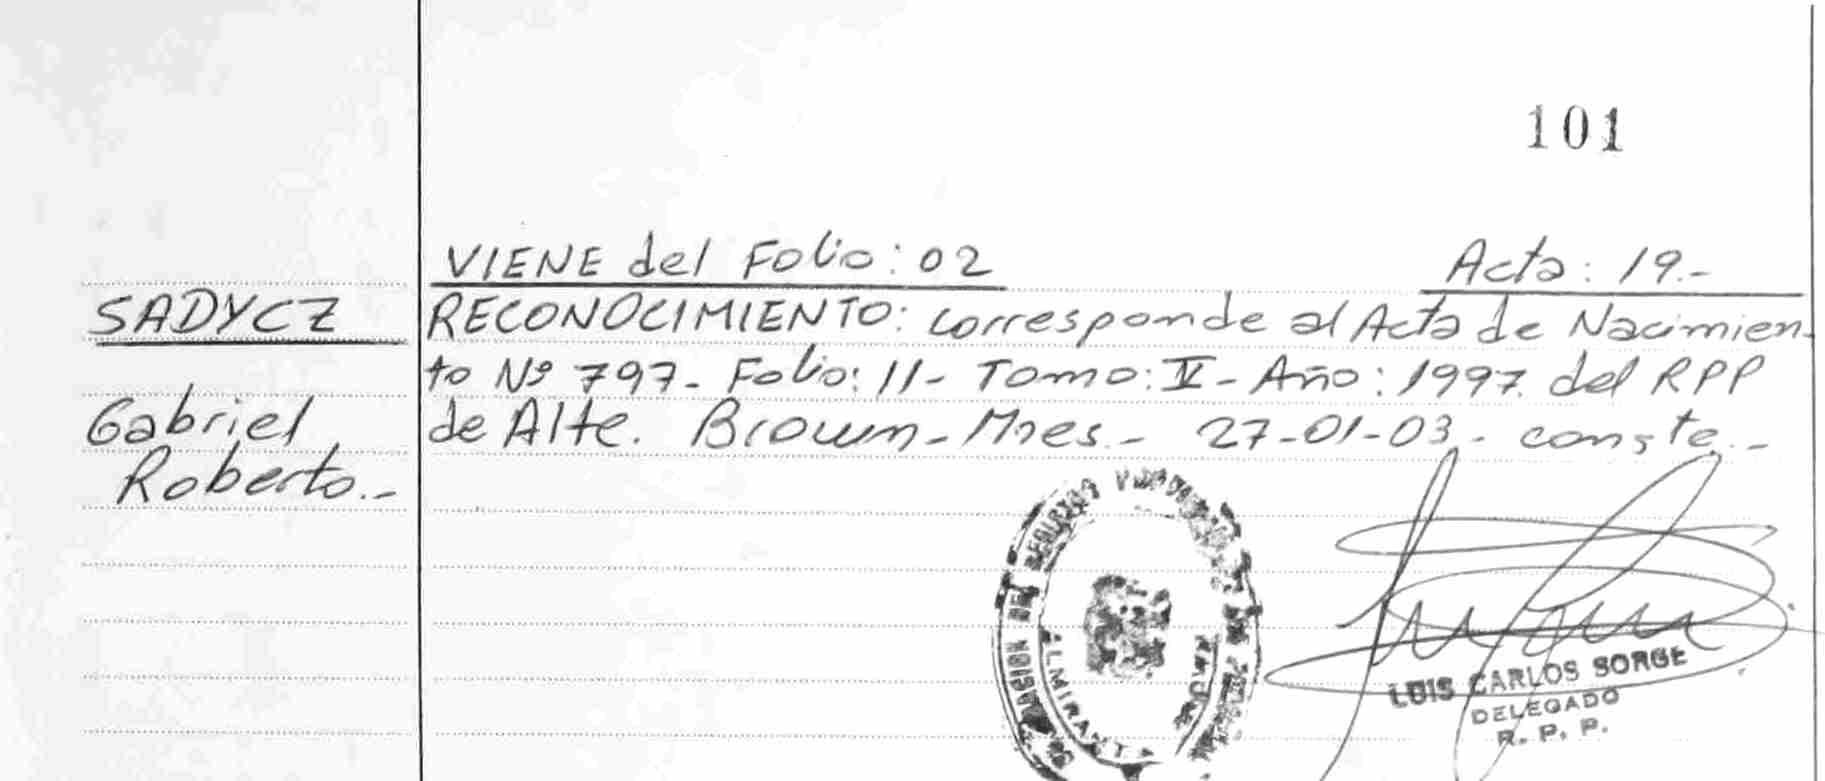 101
VIENE del Folio: 02 Acta: 19.-
SADYCZ
Gabriel
Roberto.-
RECONOCIMIENTO: corresponde al Acta de Nacimien-
to Nº 797- Folio: 11- Tomo: V- Año: 1997. del RPP
de Alte. Brown- Mnes.- 27-01-03.- conste.-
ALMIRANTE
LUIS CARLOS SORGE
DELEGADO
R. P. P.